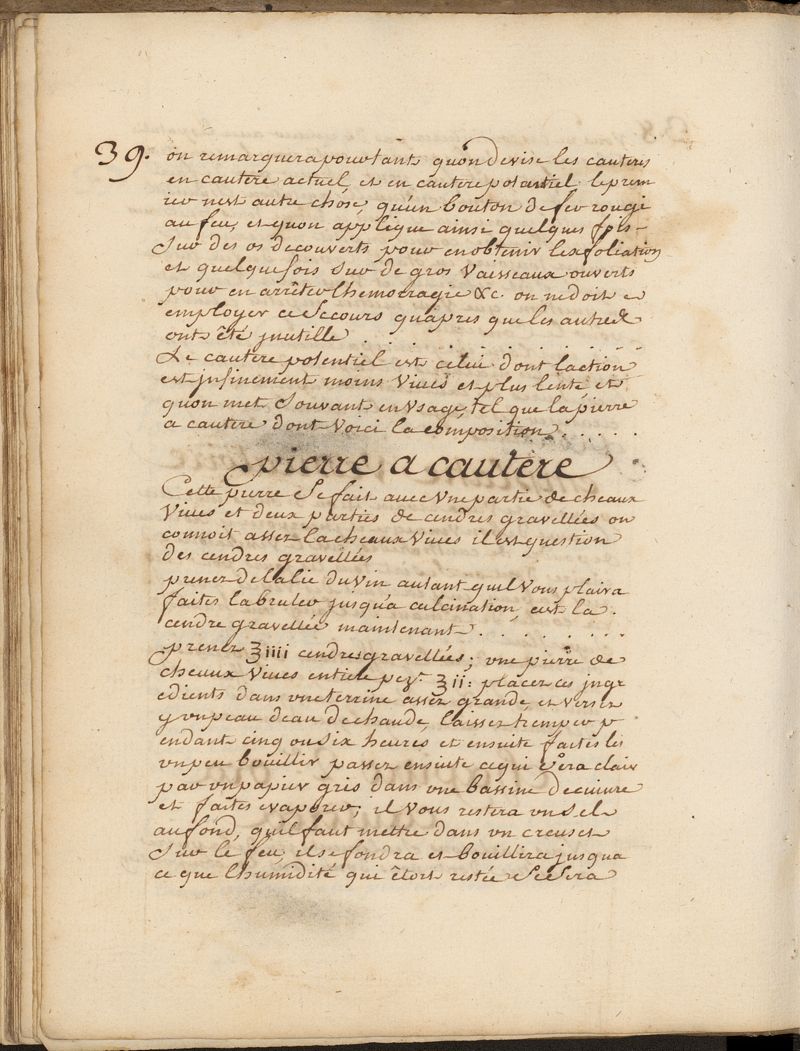 39. on remarquera pourtant quon devise les cauteres
en cautere actuel, et en cautere potantiel le prem
ier nest autre chose, qu'un bouton de fer rougi
au feu, et quon applique ainsi quelques fois
sur des os decouverts pour en obtenir lexfoliation
et quelque fois sur de gros vaisseaux ouverts
pour en arrêter lhemoragie &c. on ne doit
employer ce secours quapres que les autres
ont été jnutille . . . . . . . . . .
Le cautere potentiel est celui dont laction
est jnfinement moins vives et plus lente et
quon met souvant en vsage, tel que la pierre
a cautere dont voici la composition . . . . .
pierre a cautere
Cette pierre se fait avec vne partie de cheaux
vives et deux parties de cendres gravellées on
connoit assez la cheaux vives il est question
des cendres gravellées
prenez de la lie du vin autant quil vous plaira
faites la bruler jusqu'a calcination, c'est la
cendre gravellée maintenant . . . . . . .
prenez ʒiiii cendres gravellées; vne pierre de
cheaux vives entiere pezt. ʒii: placez ces jngr
edients dans vne terrine assez grande, et versez
y vn peau deau de chaude, laissez tremper p
endant cinq ou six heures et ensuite faites les
vn peu bouillir passez ensuite ce qui sera clair
par vn papier gris dans vne bassine de cuivre
et faites evaporer; il vous restera vn sel
au fond, quil faut mettre dans vn creuset
sur le feu, il se fondra et bouillira jusqua
ce que lhumidité qui êtoit restée se sera